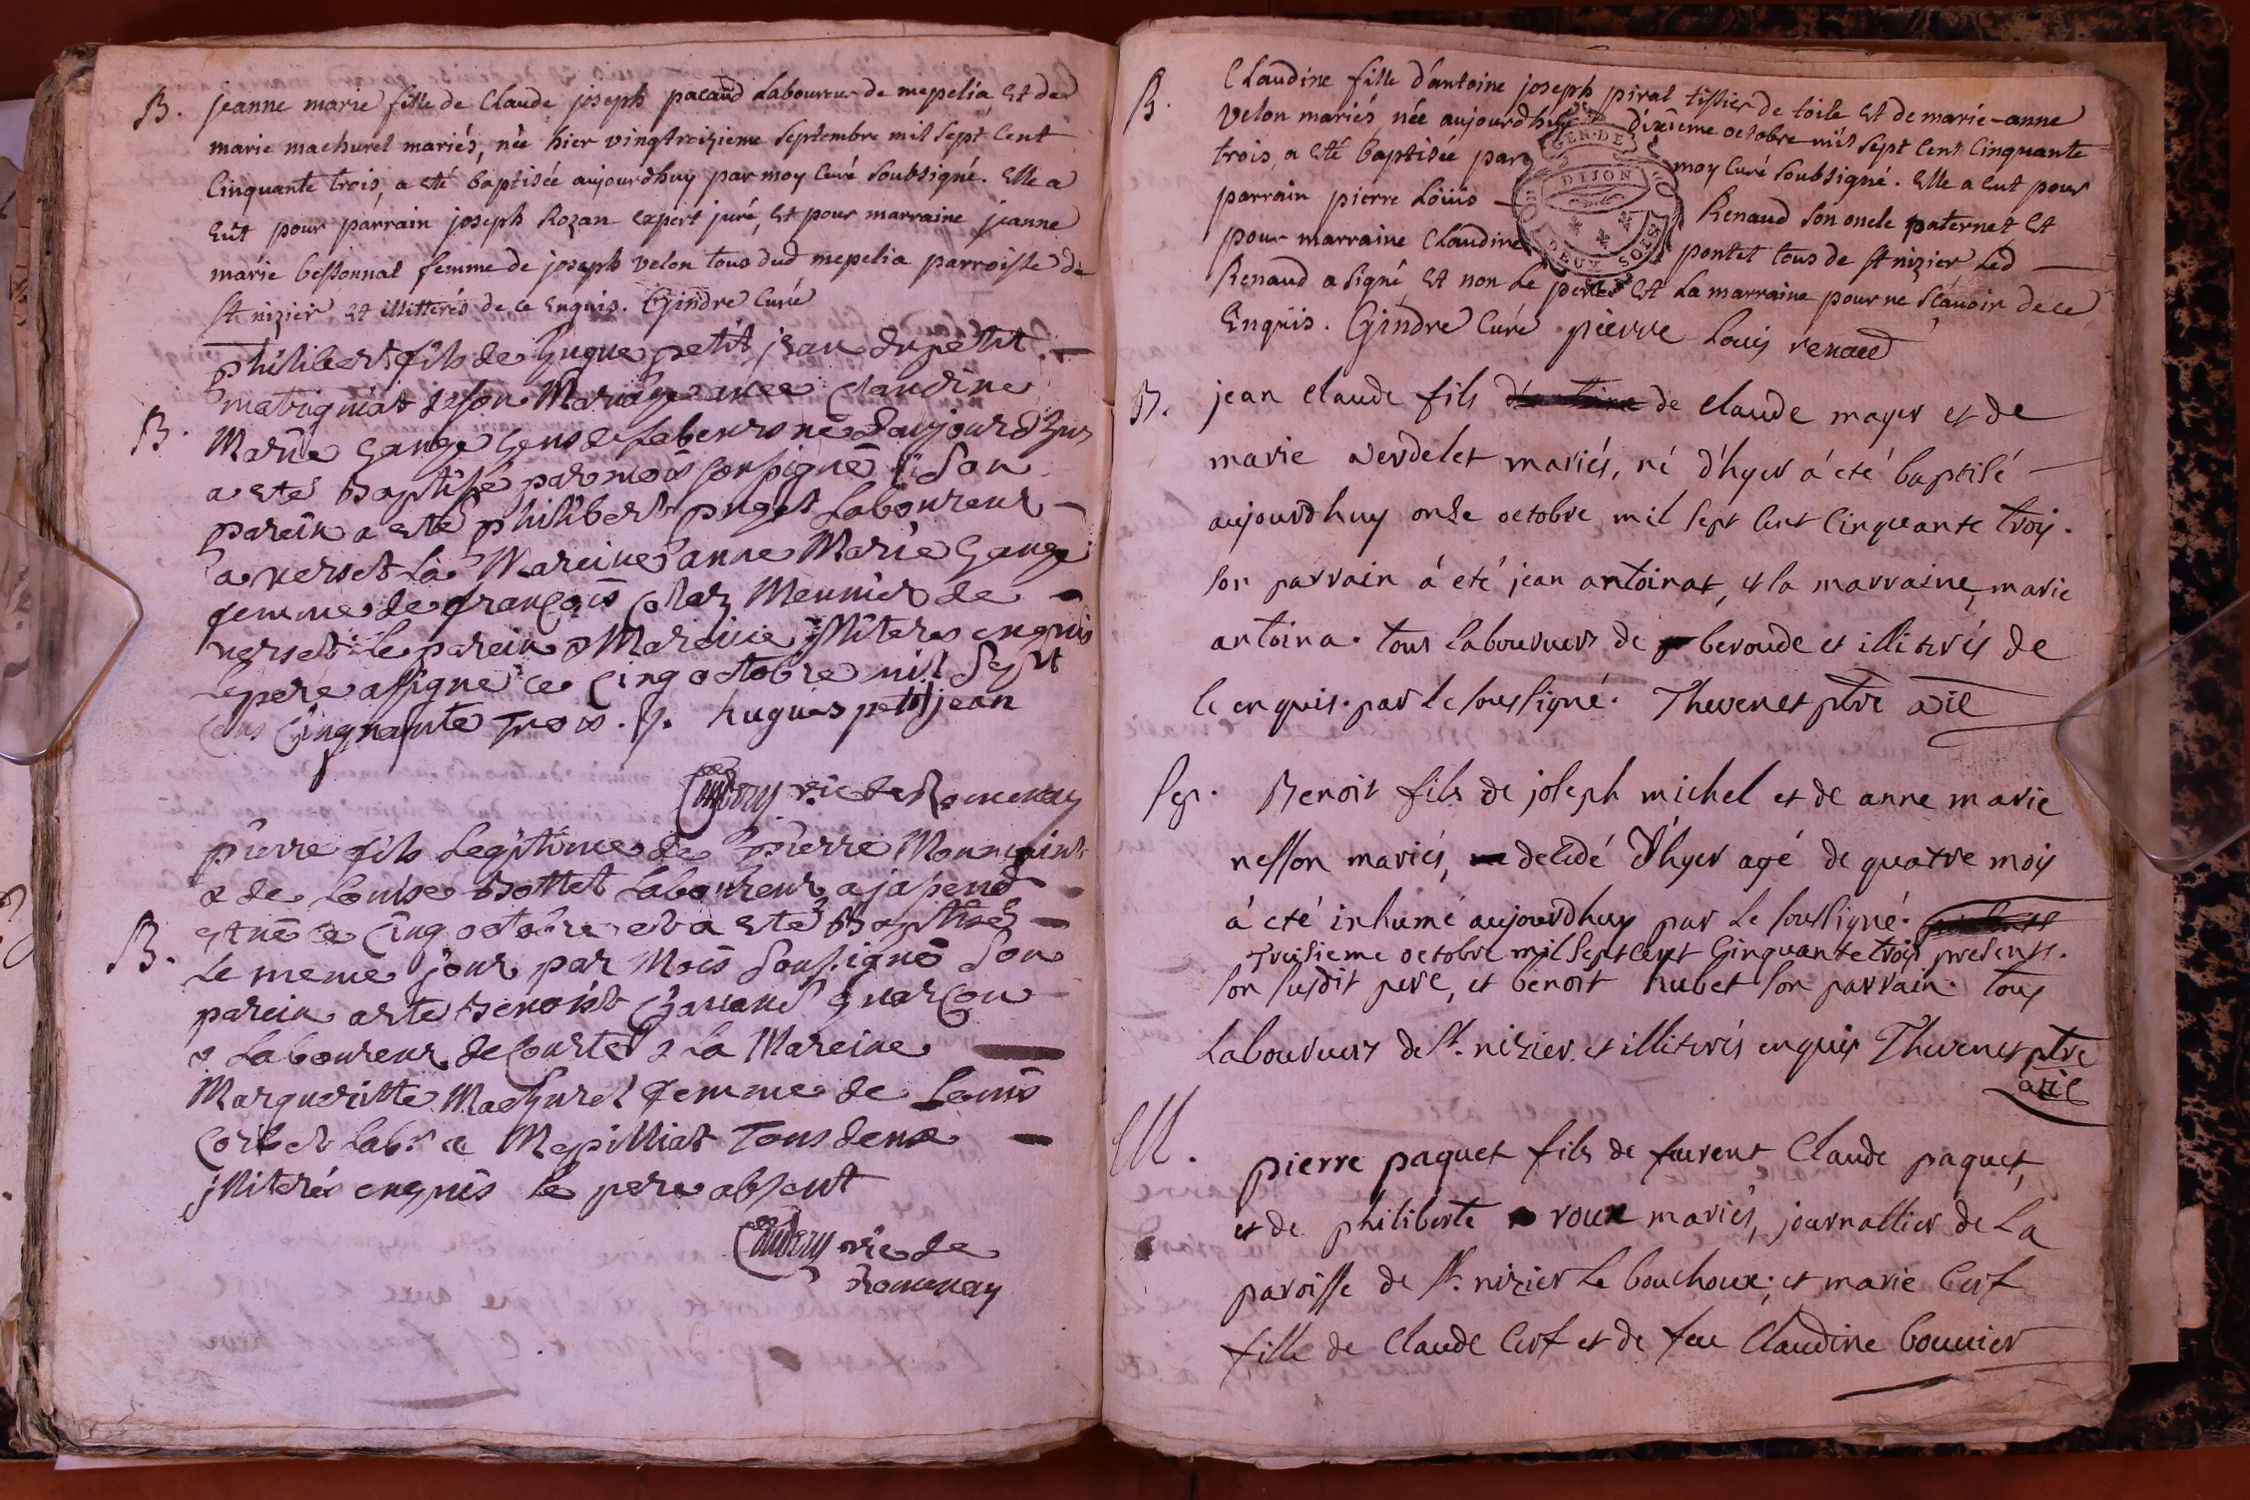 B. jeanne marie fille de Claude joseph pacaud Laboureur de mepelia Et de
marie machuret mariés, née hier vingtroizieme Septembre mil Sept Cent
Cinquante trois, a Eté baptisée aujourdhuy par moy Curé Soubsigné. Elle a
Eut pour parrain joseph Rozan expert juré, Et pour marraine jeanne
marie bessonnat femme de joseph velon tous dud mepelia parroisse de
St nizier et illitterés de ce Enquis. Gindre Curé
philibert fils de hugue petit jean du petit
matrigniat de son Mariage avec Claudine
B. Marie gens de Labeurs né d'aujourd'huy
a esté Baptisé par mois sousigné Son
parein a esté philibert puget Laboureur
a verset La Mareine anne Marie
femme de françois Meunier de
verset Le parein & Mareine illiteres enquis
Le pere a signé ce Cinq octobre mil Sept
Cens Cinquante Trois. hugues petitjean
vic de Romenay
pierre fils Legitime de pierre
& de Louise Bottet Laboureur a
est né ce Cinq octobre et a esté Baptisé
B. Le meme jour par Mois Sousigné Son
parein a esté Benoist guarçon
& Laboureur de Courtes & La Mareine
Margueritte Machuret femme de Louis
Corbet Labr a Mepilliat Tous deux
illiterés enquis Le pere absent
vic de
Romenay
B. Claudine fille d'antoine joseph pirat tissier de toile Et de marie-anne
velon mariés, née aujourdhuy dixième octobre mil Sept Cent Cinquante
trois, a Eté baptisée par moy Curé Soubsigné. Elle a Eut pour
parrain pierre Louis Renaud Son oncle paternel Et
pour marraine Claudine pontet tous de St nizier Led
Renaud a signé, Et non Le pere Et La marraine pour ne Sçavoir de ce
Enquis. Gindre Curé pierre Louis renaud
DIJON
DEUX SOLS
B. jean claude fils de claude mayer et de
marie verdelet mariés, né d'hyer á eté baptisé
aujourdhuy onze octobre mil Sept Cent Cinquante troy.
Son parrain á eté jean antoinat, et la marraine, marie
antoina. tous laboureurs de beroude et illiterés de
ce enquis. par le soussigné. Thevenet ptre vic
Sep. Benoit fils de joseph michel et de anne marie
nesson mariés, dcdé d'hyer agé de quatre moy
á eté inhumé aujourdhuy par le soussigné.
Treisieme octobre mil Sept cent Cinquante troy presents.
son susdit pere, et benoit hubet son parrain. tous
Laboureurs de St. nizier. et illiterés enquis Thevenet ptre
vic
M. pierre paquet fils de furent Claude paquet,
et de philiberte roux mariés, journallier de La
paroisse de St. nizier Le bouchoux; et marie Cerf
fille de Claude Cerf et de feu Claudine bouvier